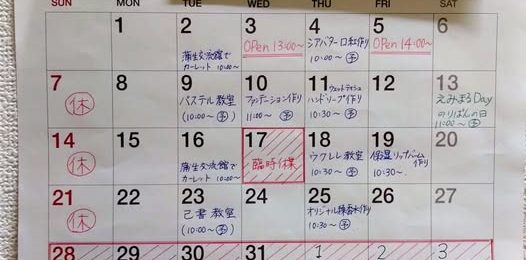 SUN MON TUE WED THU FRI SAT
1 2 3 4 5 6
蒲生交流館で
カーレット 10:00~
OPen 13:00~
シアバター口紅作り
10:00~ 予
OPen 14:00~
7 8 9 10 11 12 13
休
パステル教室
(10:00~ 予)
ファンデーション作り
11:00~ 予
ウェットティッシュ
ハンドソープ作り
10:30~ 予
えみまるDay
のりばんの日
11:00~ 予
14 15 16 17 18 19 20
休
蒲生交流館で
カーレット 10:00~
臨時休業
ウクレレ教室
10:30~ 予
保湿リップバーム作り
10:30~
21 22 23 24 25 26 27
休
己書教室
(10:00~ 予)
オリジナル検香水作り
10:30~ 予
28 29 30 31 1 2 3